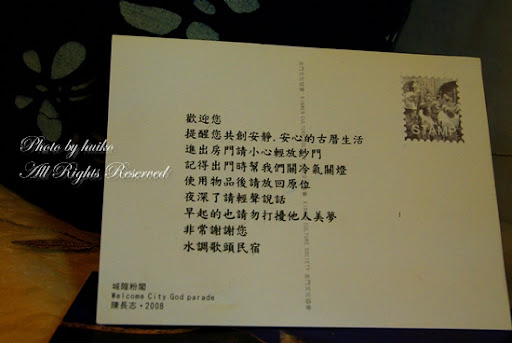 歡迎您
提醒您共創安靜.安心的古厝生活
進出房門請小心輕放紗門
記得出門時幫我們關冷氣關燈
使用物品後請放回原位
夜深了請輕聲說話
早起的也請勿打擾他人美夢
非常謝謝您
水調歌頭民宿
STAMP
城隍粉閣
Welcome City God parade
陳長志・2008
Photo by huiko
All Rights Reserved